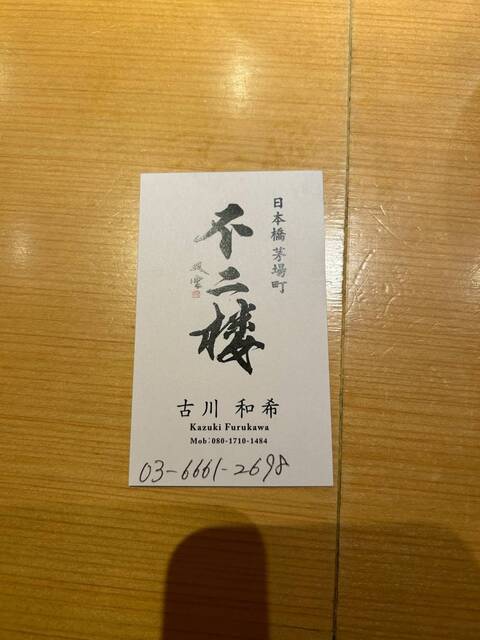 日本橋茅場町
不二楼
古川 和希
Kazuki Furukawa
Mob:080-1710-1484
03-6661-2698